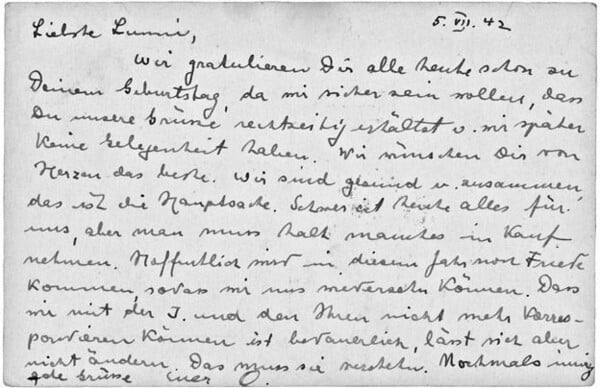 5. VII. 42
Liebste Lumni,
Wir gratulieren Dir alle heute schon zu
Deinem Geburtstag, da wir sicher sein wollen, dass
Du unsere Grüsse rechtzeitig erhältst u. wir später
keine Gelegenheit haben. Wir wünschen Dir von
Herzen das beste. Wir sind gesund u. zusammen,
das ist die Hauptsache. Schwer ist heute alles für
uns, aber man muss halt manches in Kauf
nehmen. Hoffentlich wird in diesem Jahr noch Friede
kommen, sodass wir uns wiedersehn können. Dass
wir mit der I. und den Ihren nicht mehr korres-
pondieren können ist bedauerlich, lässt sich aber
nicht ändern. Das muss sie verstehn. Nochmals innig
Grüsse